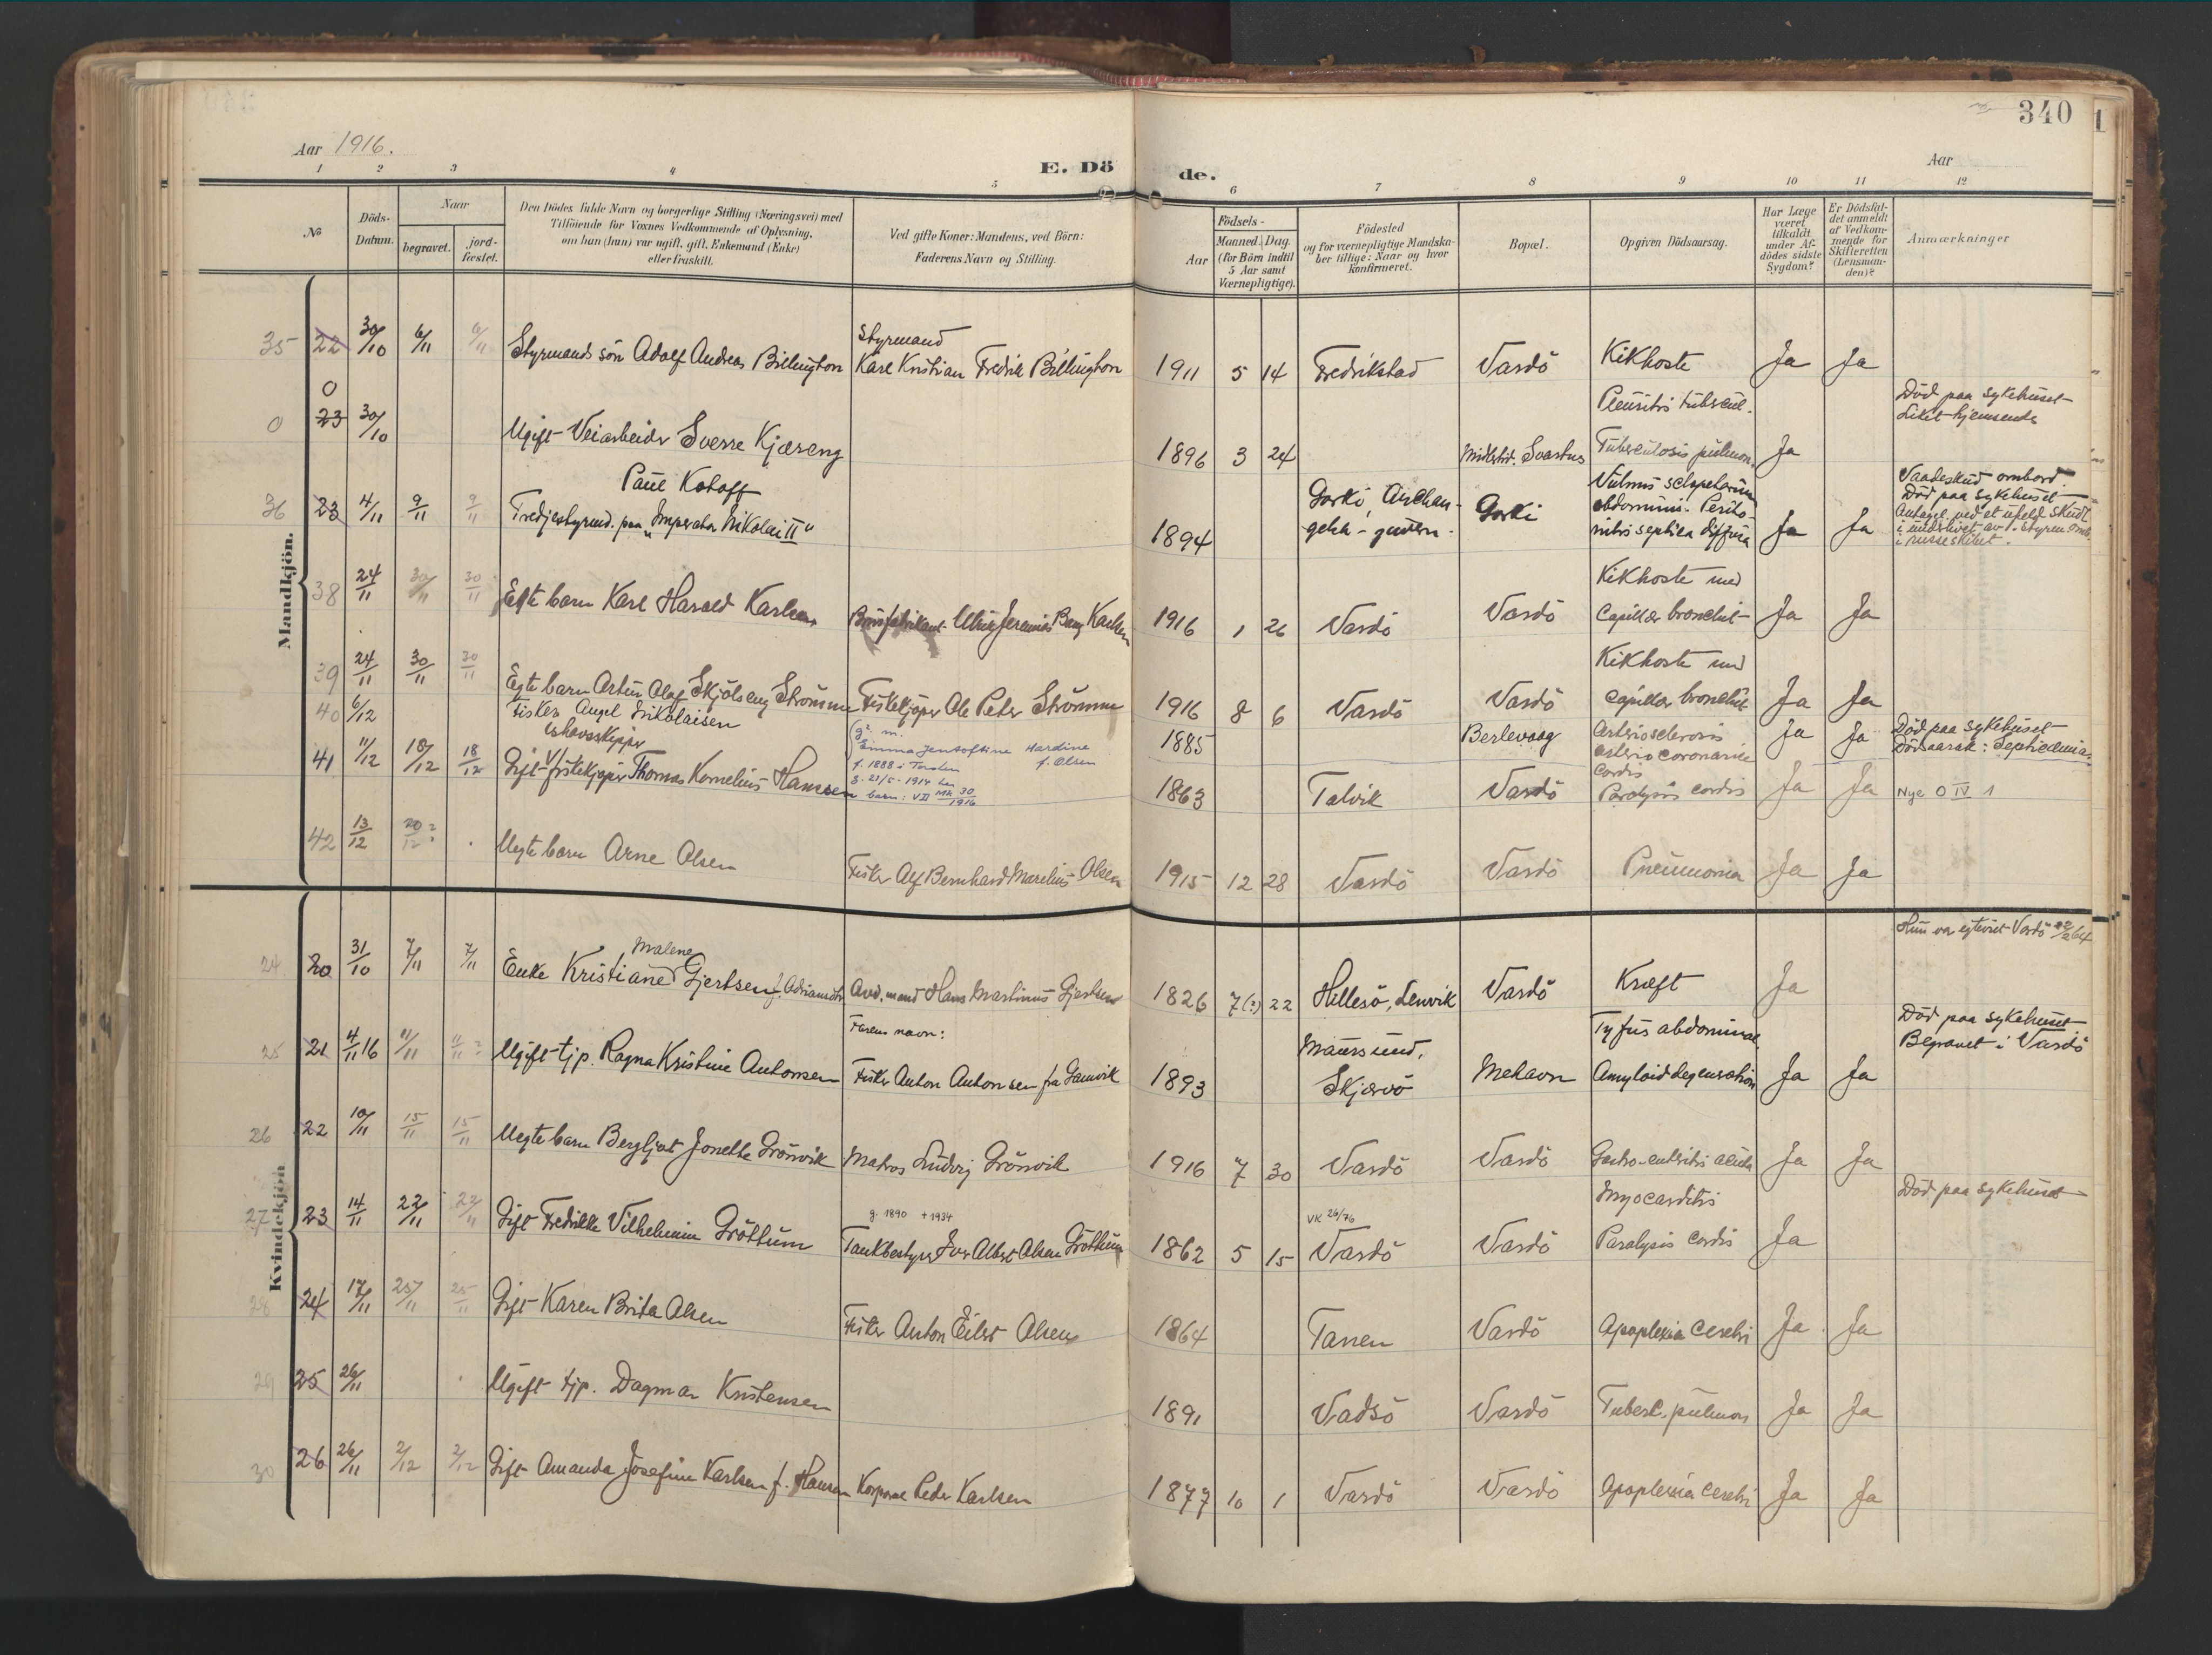 340
Aar 1916.
E. Dö de.
Aar
1 2 3 4 5 6 7 8 9 10 11 12
№
Döds-Datum.
Naar
begravet.
jord-fæstet.
Den Dödes fulde Navn og borgerlige Stilling (Næringsvei) med
Tilföiende for Voxnes Vedkommende af Oplysning,
om han (hun) var ugift, gift, Enkemand (Enke)
eller fraskilt.
Ved gifte Koner: Mandens, ved Börn:
Faderens Navn og Stilling.
Födsels-
Aar
Maaned. Dag.
(for Börn indtil
5 Aar samt
Værnepligtige).
Födested
og for værnepligtige Mandska-
ber tillige: Naar og hvor
konfirmeret.
Bopæl.
Opgiven Dödsaarsag.
Har Læge
været
tilkaldt
under Af-
dödes sidste
Sygdom?
Er Dödsfal-
det anmeldt
af Vedkom-
mende for
Skifteretten
(Lensman-
den)?
Anmærkninger
Mandkjön.
35 22 30/10 6/11 6/11 Styrmands sön Adolf Andreas Billington Styrmand Karl Kristian Fredrik Billington 1911 5 14 Fredrikstad Vardö Kikhoste Ja Ja
0 0 23 30/10 Ugift Veiarbeider Sverre Kjæreng 1896 3 24 Midlertid. Svartnes Pleuritis tubercul. Tuberculosis pulmon. Ja Död paa sykehuset Liket hjemsendt
36 23 4/11 9/11 9/11 Paul Kotoff Tredjestyrmd. paa „Imperator Nikolai II" 1894 Gorki, Archan-gelsk-guvern. Gorki Vulnus sclopetarium abdominis. Perito-nitis septica diffusa Ja Ja Vaadeskud ombord. Död paa sykehuset
38 24/11 30/11 30/11 Egte barn Karl Harald Karlsen Brusfabrikant Ulrik Jeremias Bang Karlsen 1916 1 26 Vardö Vardö Kikhoste med Capillær bronchit Ja Ja
39 24/11 30/11 30/11 Egte barn Artur Olaf Skjölseng Strömme Fiskekjöper Ole Peter Strömme 1916 8 6 Vardö Vardö Kikhoste med Capillær bronchit Ja Ja
40 6/12 Fisker Angel Nikolaisen 1885 Berlevaag Arteriosclerosis Ja Ja Död paa sykehuset Dödsaarsak: Septicæmia.
41 11/12 18/12 18/12 Ishavsskipper Gift fiskekjöper Thomas Kornelius Hanssen (g. m. Emma Jentoftine Hardine f. Olsen f. 1888 i Torsken g. 21/5-1914 barn: VII Mk 30/1916 1863 Talvik Vardö arterio coronariæ cordis Paralysis cordis Ja Ja Nye O IV 1
42 13/12 20/12? Uegte barn Arne Olsen Fisker Alf Bernhard Marelius Olsen 1915 12 28 Vardö Vardö Pneumonia Ja Ja
Kvindekjön
24 20 31/10 7/11 7/11 Enke Kristiane Malene Gjertsen f. Adriansdtr. Avd. mand Hans Martinus Gjertsen 1826 7(?) 22 Hillesö, Lenvik Vardö Kræft Ja Hun var egteviet Vardö 22/2 64
25 21 4/11 16 11/11 11/11? Ugift tjp. Ragna Kristine Antonsen Farens navn: Fisker Anton Antonsen fra Gamvik 1893 Maursund, Skjervö Mehavn Tyfus abdominal. Amyloiddegeneration Ja Ja Död paa sykehuset. Begravet i Vardö
26 22 10/11 15/11 15/11 Uegte barn Bergljot Jonette Grönvik Matros Ludvig Grönvik 1916 7 30 Vardö Vardö Gastro-enteritis acuta Ja Ja
27 23 14/11 22/11 22/11 Gift Fredrikke Vilhelmine Gröttum g. 1890 +1934 Tankbestyrer Iver Albert Olsen Gröttum 1862 5 15 VK 26/76 Vardö Vardö Myocarditis Paralysis cordis Ja Död paa sykehuset
28 24 17/11 25/11 25/11 Gift Karen Brita Olsen Fisker Anton Eilert Olsen 1864 Tanen Vardö Apoplexia cerebri Ja Ja
29 25 26/11 Ugift tjp. Dagmar Kristensen 1891 Vadsö Vardö Tuberk. pulmon Ja Ja
30 26 26/11 2/12 2/12 Gift Amanda Josefine Karlsen f. Hansen Korporal Peder Karlsen 1877 10 1 Vardö Vardö Apoplexia cerebri Ja Ja